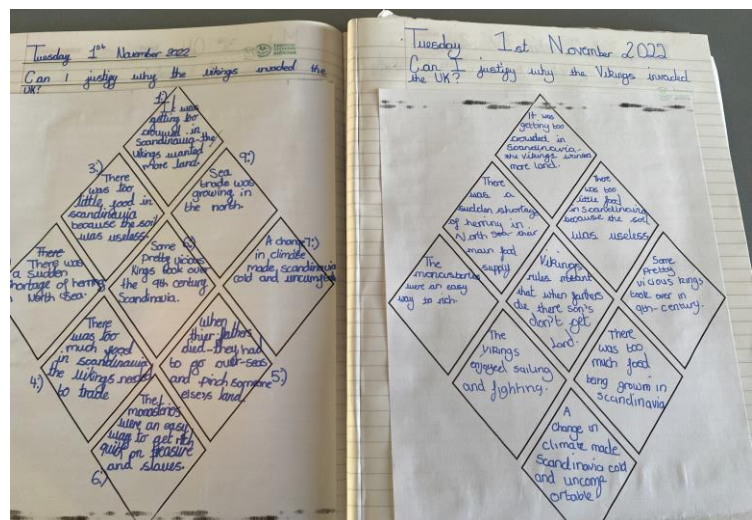 Tuesday 1st November 2022
Can I justify why the vikings invaded the
UK?
1.) It was
getting too
crowded in
Scandinavia-the
vikings wanted
more land.
3.) There
was too
little food in
scandinavia
because the soil
was useless.
9.) Sea
trade was
growing in
the north.
There
There was
a sudden
shortage of herring
North sea.
Some
pretty vicious
Kings took over
the 9th century
Scandinavia.
7.) A change
in climate
made scandinavia
cold and
4.) There
was too
much food
in scandinavia
the vikings needed
to trade
5.) When
thier fathers
died-they had
to go over-seas
and pinch someone
elses land.
6.) The
were an easy
way to get rich
quick treasure
and slaves.
Tuesday 1st November 2022
Can I justify why the Vikings invaded
the UK?
It was
getting too
crowded in
Scandinavia-
the vikings wanted
more land.
There
was a
sudden shortage
of herring in
North sea-their
main food
supply
There
was too
little food
in Scandinavia
because the soil
was useless
The
were an easy
way to rich.
Vikings
rules meant
that when fathers
die there son's
don't get
land.
Some
pretty
vicious kings
took over in
9th-century.
The
Vikings
enjoyed sailing
and fighting.
There
was too
much food
being grown in
scandinavia
A
change in
climate made
Scandinavia cold
and uncomf
ortable